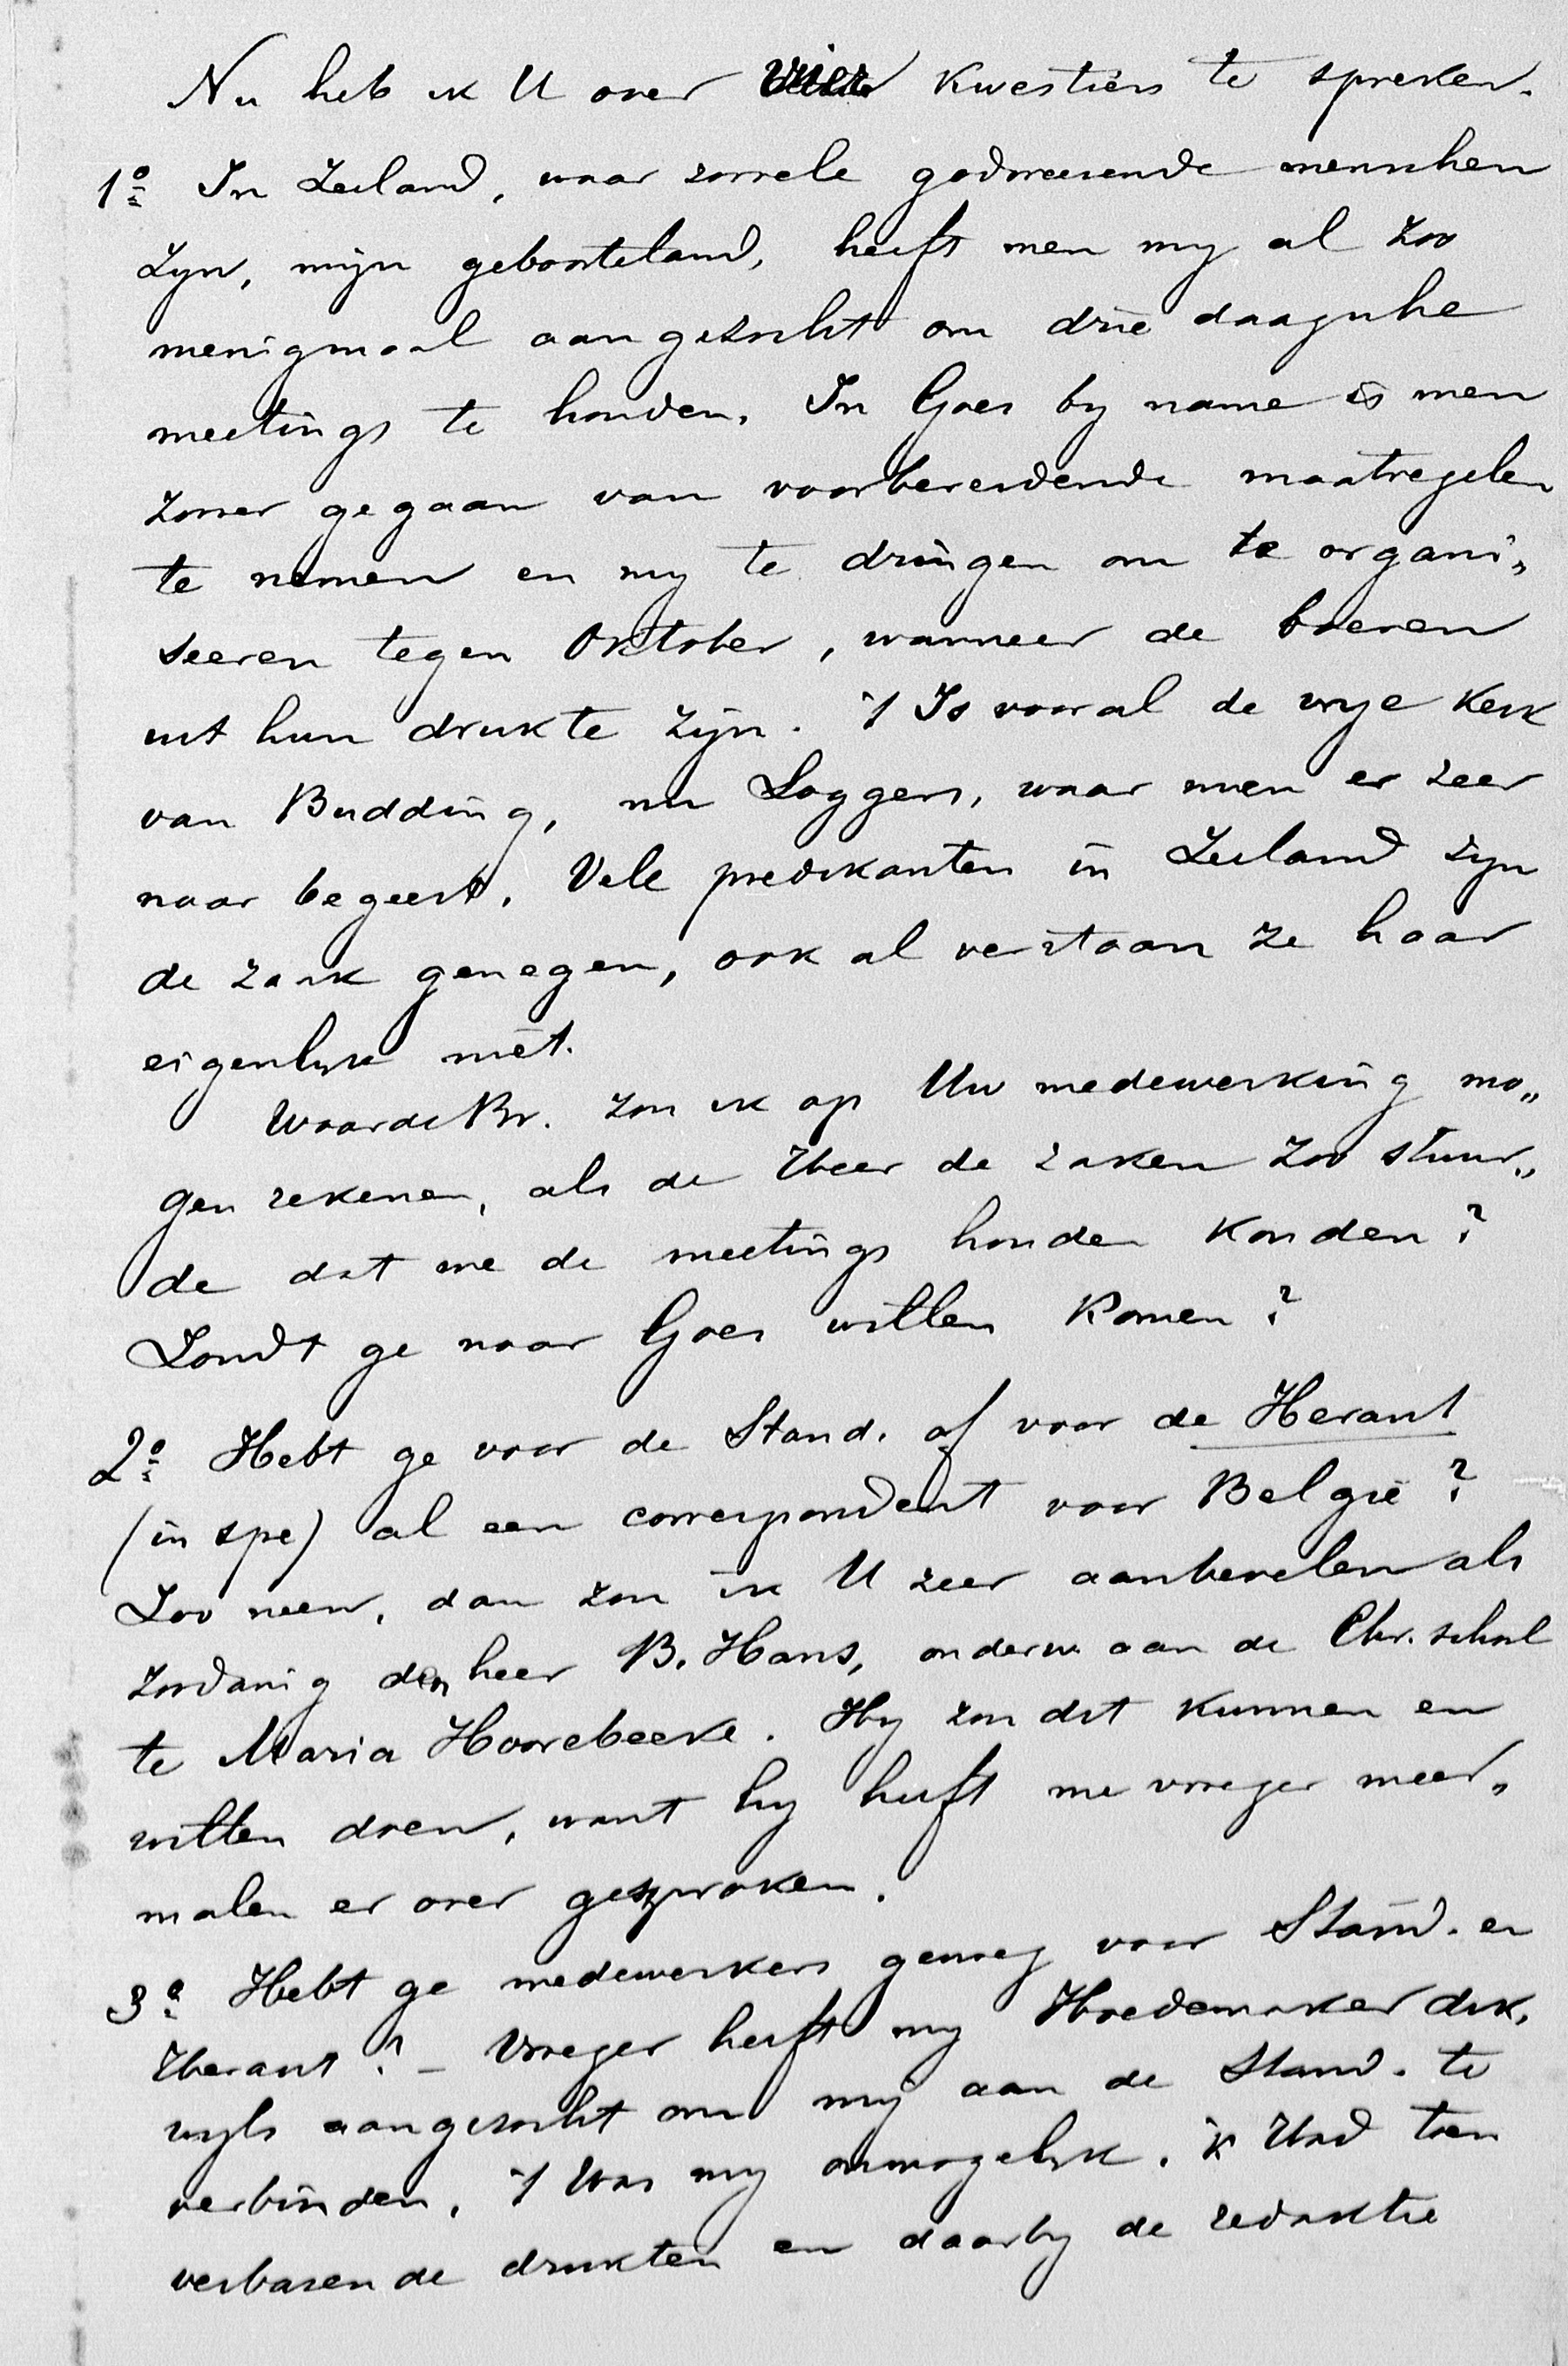 Nu heb ik U over vier kwestiën te spreken.
1º In Zeeland, waar zoovele godvreezende menschen
zyn, mijn geboorteland, heeft men my al zoo
menigmaal aangezocht om drie daagsche
meetings te houden. In Goes by name is men
zoover gegaan van voorbereidende maatregelen
te nemen en my te dringen om te organi„
seeren tegen Oktober, wanneer de boeren
uit hun drukte zijn. 't Is vooral de vrye Kerk
van Budding, nu Loggers, waar men er zeer
naar begeert. Vele predikanten in Zeeland zyn
de zaak genegen, ook al verstaan ze haar
eigenlyk niet.
Waarde Br. zou ik op Uw medewerking mo„
gen rekenen, als de Heer de zaken zoo stuur„
de dat we de meetings houden konden?
Zoudt ge naar Goes willen komen?
2º Hebt ge voor de Stand. of voor de Heraut
(in spe) al een correspondent voor België?
Zoo neen, dan zou ik U zeer aanbevelen als
zoodanig den heer B. Hans, onderw. aan de Chr. school
te Maria Hoorebeeke. Hy zou dit kunnen en
willen doen, want hy heeft me vroeger meer„
malen er over gesproken.
3º Hebt ge medewerkers genoeg voor Stand. en
Heraut? – Vroeger heeft my Hoedemaker dik,
wyls aangezocht om mij aan de Stand. te
verbinden. 't Was my onmogelyk. ik Had toen
verbazende drukten en daarby de redaktie